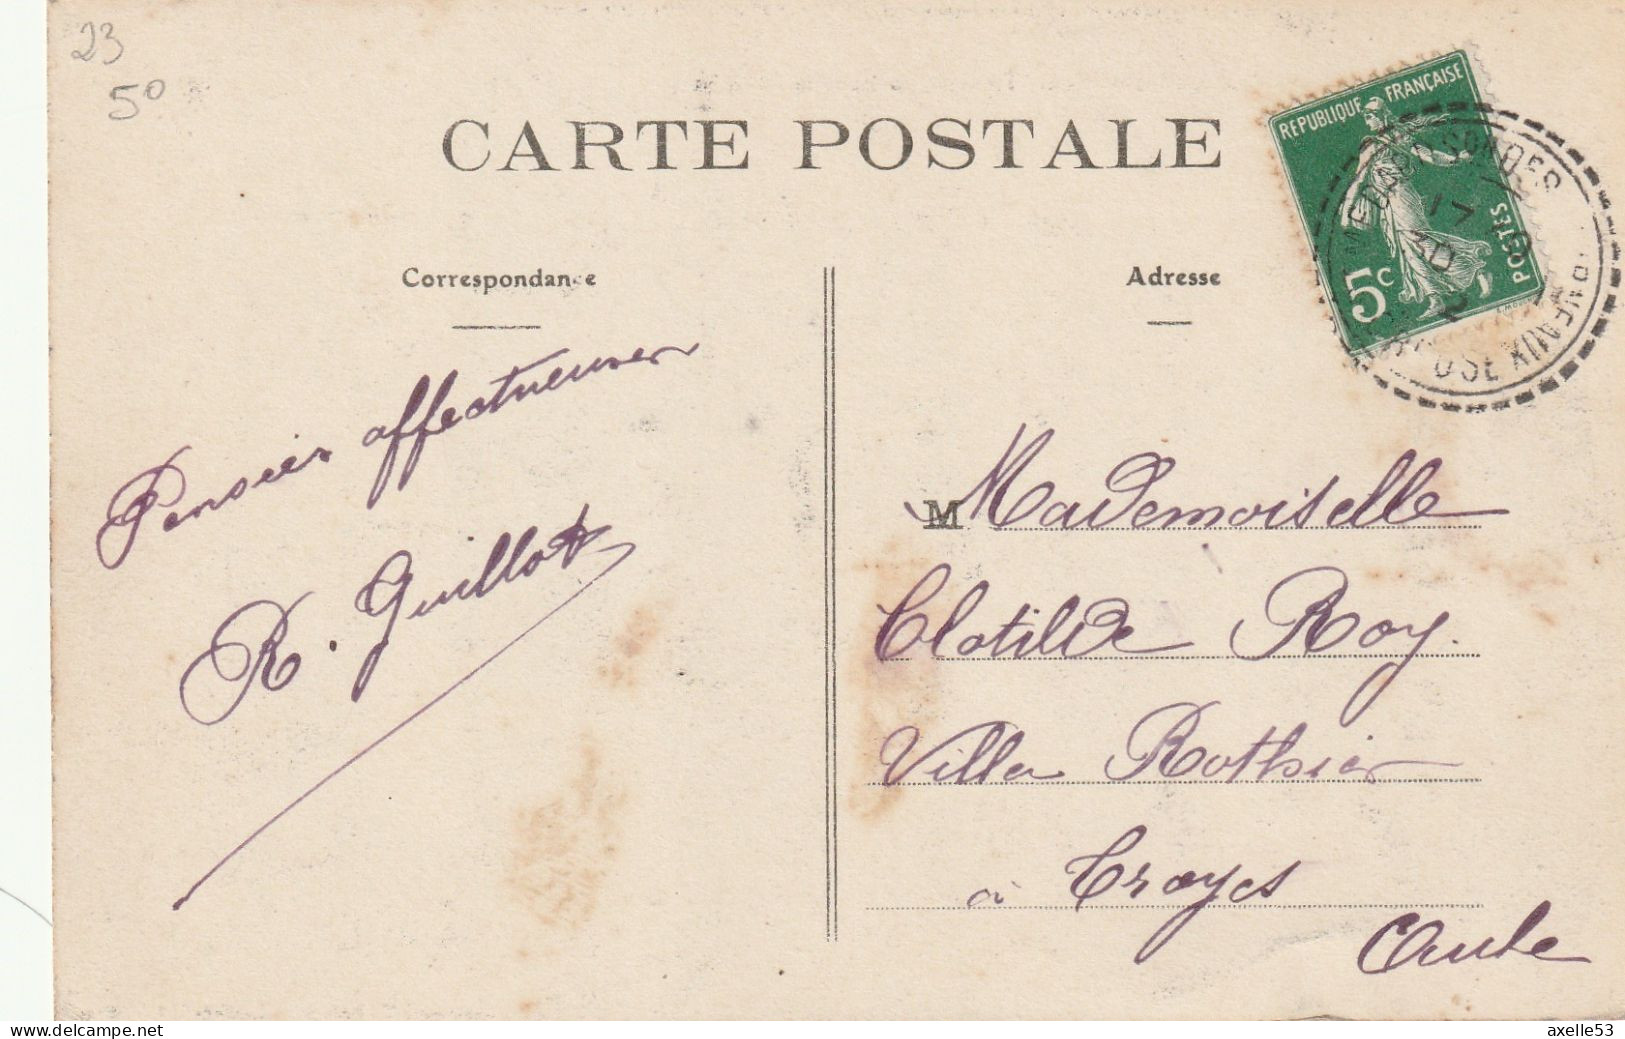 23
50
CARTE POSTALE
REPUBLIQUE FRANÇAISE
POSTES
5c
17
30
12
Correspondance
Adresse
Pensées affectueuses
R. Guillot
M Mademoiselle
Clotilde Roy.
Villa Rothier
à Troyes
Aube
axelle53